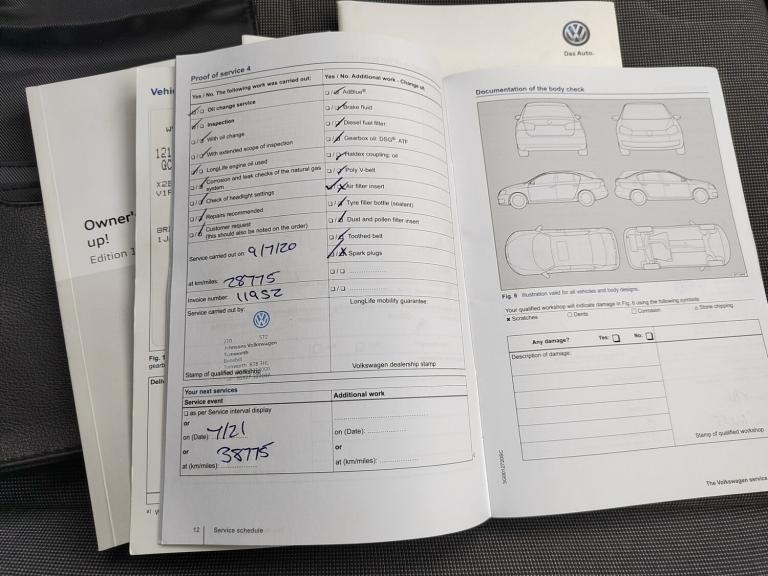 Das Auto.
Owner's
up!
Edition 1
Vehi
121
QC
X2E
V1F
BR
1J
Fig. 1
gearb
Proof of service 4
Yes / No. The following work was carried out:
Oil change service
Inspection
With oil change
With extended scope of inspection
LongLife engine oil used
Corrosion and leak checks of the natural gas
system
Check of headlight settings
Repairs recommended
Customer request
(this should also be noted on the order)
Service carried out on: 9/7/20
at km/miles: 28775
Invoice number: 11952
Service carried out by:
Johnsons Volkswagen
Tamworth
Stamp of qualified workshop
Yes / No. Additional work - Change of:
AdBlue®
Brake fluid
Diesel fuel filter
Gearbox oil: DSG®, ATF
Haldex coupling: oil
Poly V-belt
Air filter insert
Tyre filler bottle (sealant)
Dust and pollen filter insert
Toothed belt
Spark plugs
LongLife mobility guarantee
Volkswagen dealership stamp
Your next services
Service event
Additional work
as per Service interval display
or
on (Date): 7/21
or 38775
at (km/miles):
on (Date):
or
at (km/miles):
12 Service schedule
Documentation of the body check
Fig. 6 Illustration valid for all vehicles and body designs.
Your qualified workshop will indicate damage in Fig. 6 using the following symbols:
x Scratches
Dents
Corrosion
Stone chipping
Any damage?
Yes:
No:
Description of damage:
Stamp of qualified workshop
The Volkswagen service